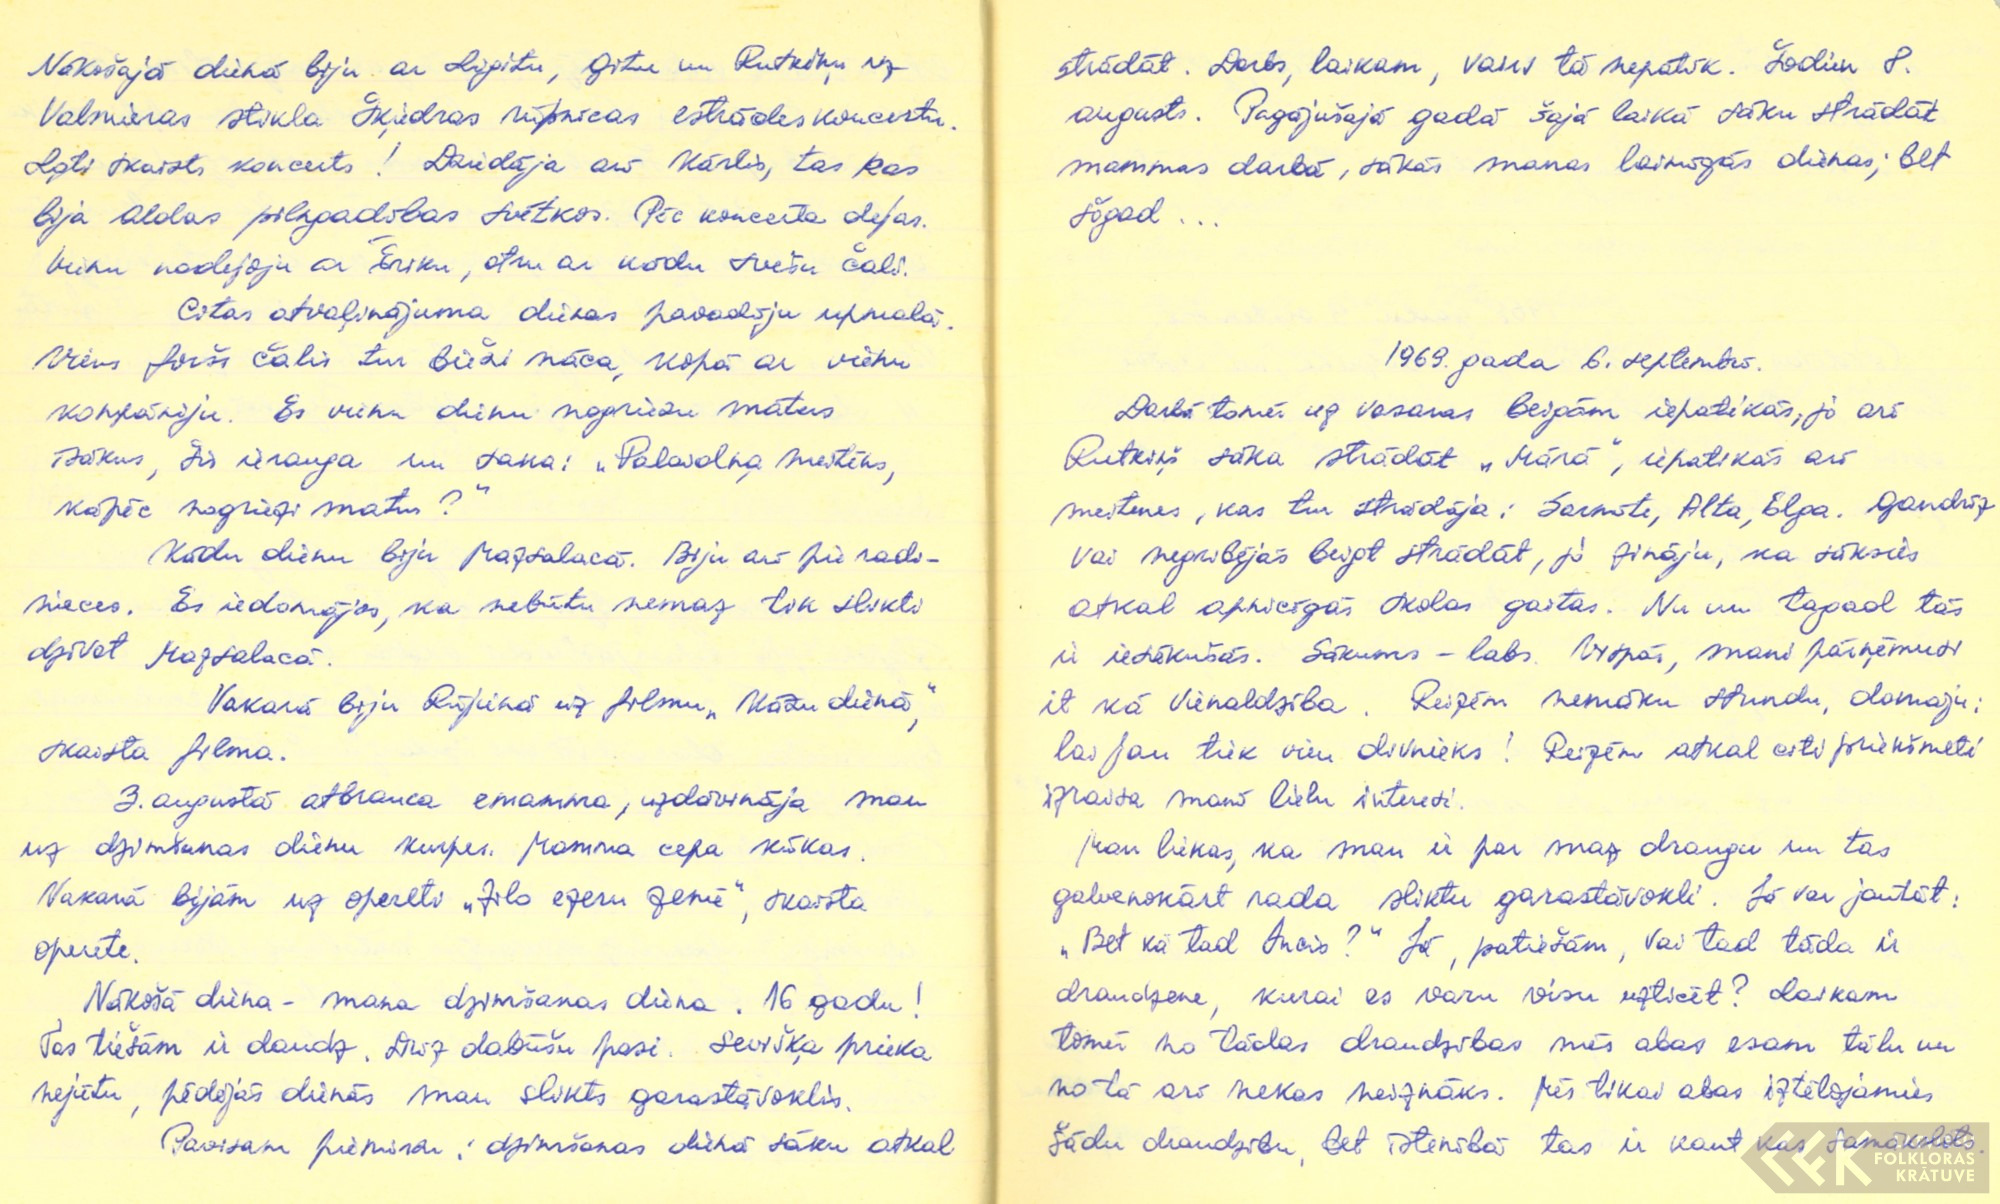 Nākošajā dienā biju ar Ligitu, Gitu un Rutkiņu uz
Valmieras stikla šķiedras rūpnīcas estrādes koncertu.
Ļoti skaists koncerts! Dziedāja arī Kārlis, tas kas
bija Aldas pilngadības svētkos. Pēc koncerta dejas.
Vienu nodejoju ar Ēriku, otru ar kādu svešu čali.
Citas atvaļinājuma dienas pavadīju upmalā.
Viens foršs čalis tur bieži nāca, kopā ar vienu
kompāniju. Es vienu dienu nogriezu matus
īsākus, šis ierauga un saka: „Palaidņa meitēns,
kāpēc nogriezi matus?“
Kādu dienu biju Mazsalacā. Biju arī pie radi-
nieces. Es iedomājos, ka nebūtu nemaz tik slikti
dzīvot Mazsalacā.
Vakarā biju Rūjienā uz filmu „Kāzu dienā“,
skaista filma.
3. augustā atbrauca emamma, uzdāvināja man
uz dzimšanas dienu kurpes. Mamma cepa kūkas.
Vakarā bijām uz opereti „Zilo ezeru zemē“, skaista
operete.
Nākošā diena - mana dzimšanas diena. 16 gadu!
Tas tiešām ir daudz. Drīz dabūšu pasi. Sevišķa prieka
nejūtu, pēdējās dienās man slikts garastāvoklis.
Pavisam piemirsu: dzimšanas dienā sāku atkal
strādāt. Darbs, laikam, vairs tā nepatīk. Šodien 8.
augusts. Pagājušajā gadā šajā laikā sāku strādāt
mammas darbā, sākās manas laimīgās dienas; bet
šogad ...
1969. gada 6. septembrī.
Darbā tomēr uz vasaras beigām iepatikās, jo arī
Rutkiņš sāka strādāt „Mārā“, iepatikās arī
meitenes, kas tur strādāja: Sarmīte, Alta, Elga. Gandrīz
vai negribējās beigt strādāt, jo zināju, ka sāksies
atkal apnicīgās skolas gaitas. Nu un tagad tās
ir iesākušās. Sākums - labs. Vispār, mani pārņēmusi
it kā vienaldzība. Reizēm nemāku stundu, domāju:
lai jau tiek viens divnieks! Reizēm atkal citi priekšmeti
izraisa manī lielu interesi.
Man liekas, ka man ir par maz draugu un tas
galvenokārt rada sliktu garastāvokli. Jā var jautāt:
„Bet kā tad Incis?“ Jā, patiešām, vai tad tāda ir
draudzene, kurai es varu visu uzticēt? Laikam
tomēr no tādas draudzības mēs abas esam tālu un
no tā arī nekas neiznāks. Mēs tikai abas iztēlojamies
šādu draudzību, bet īstenībā tas ir kaut kas samākslots.
FOLKLORAS
KRĀTUVE